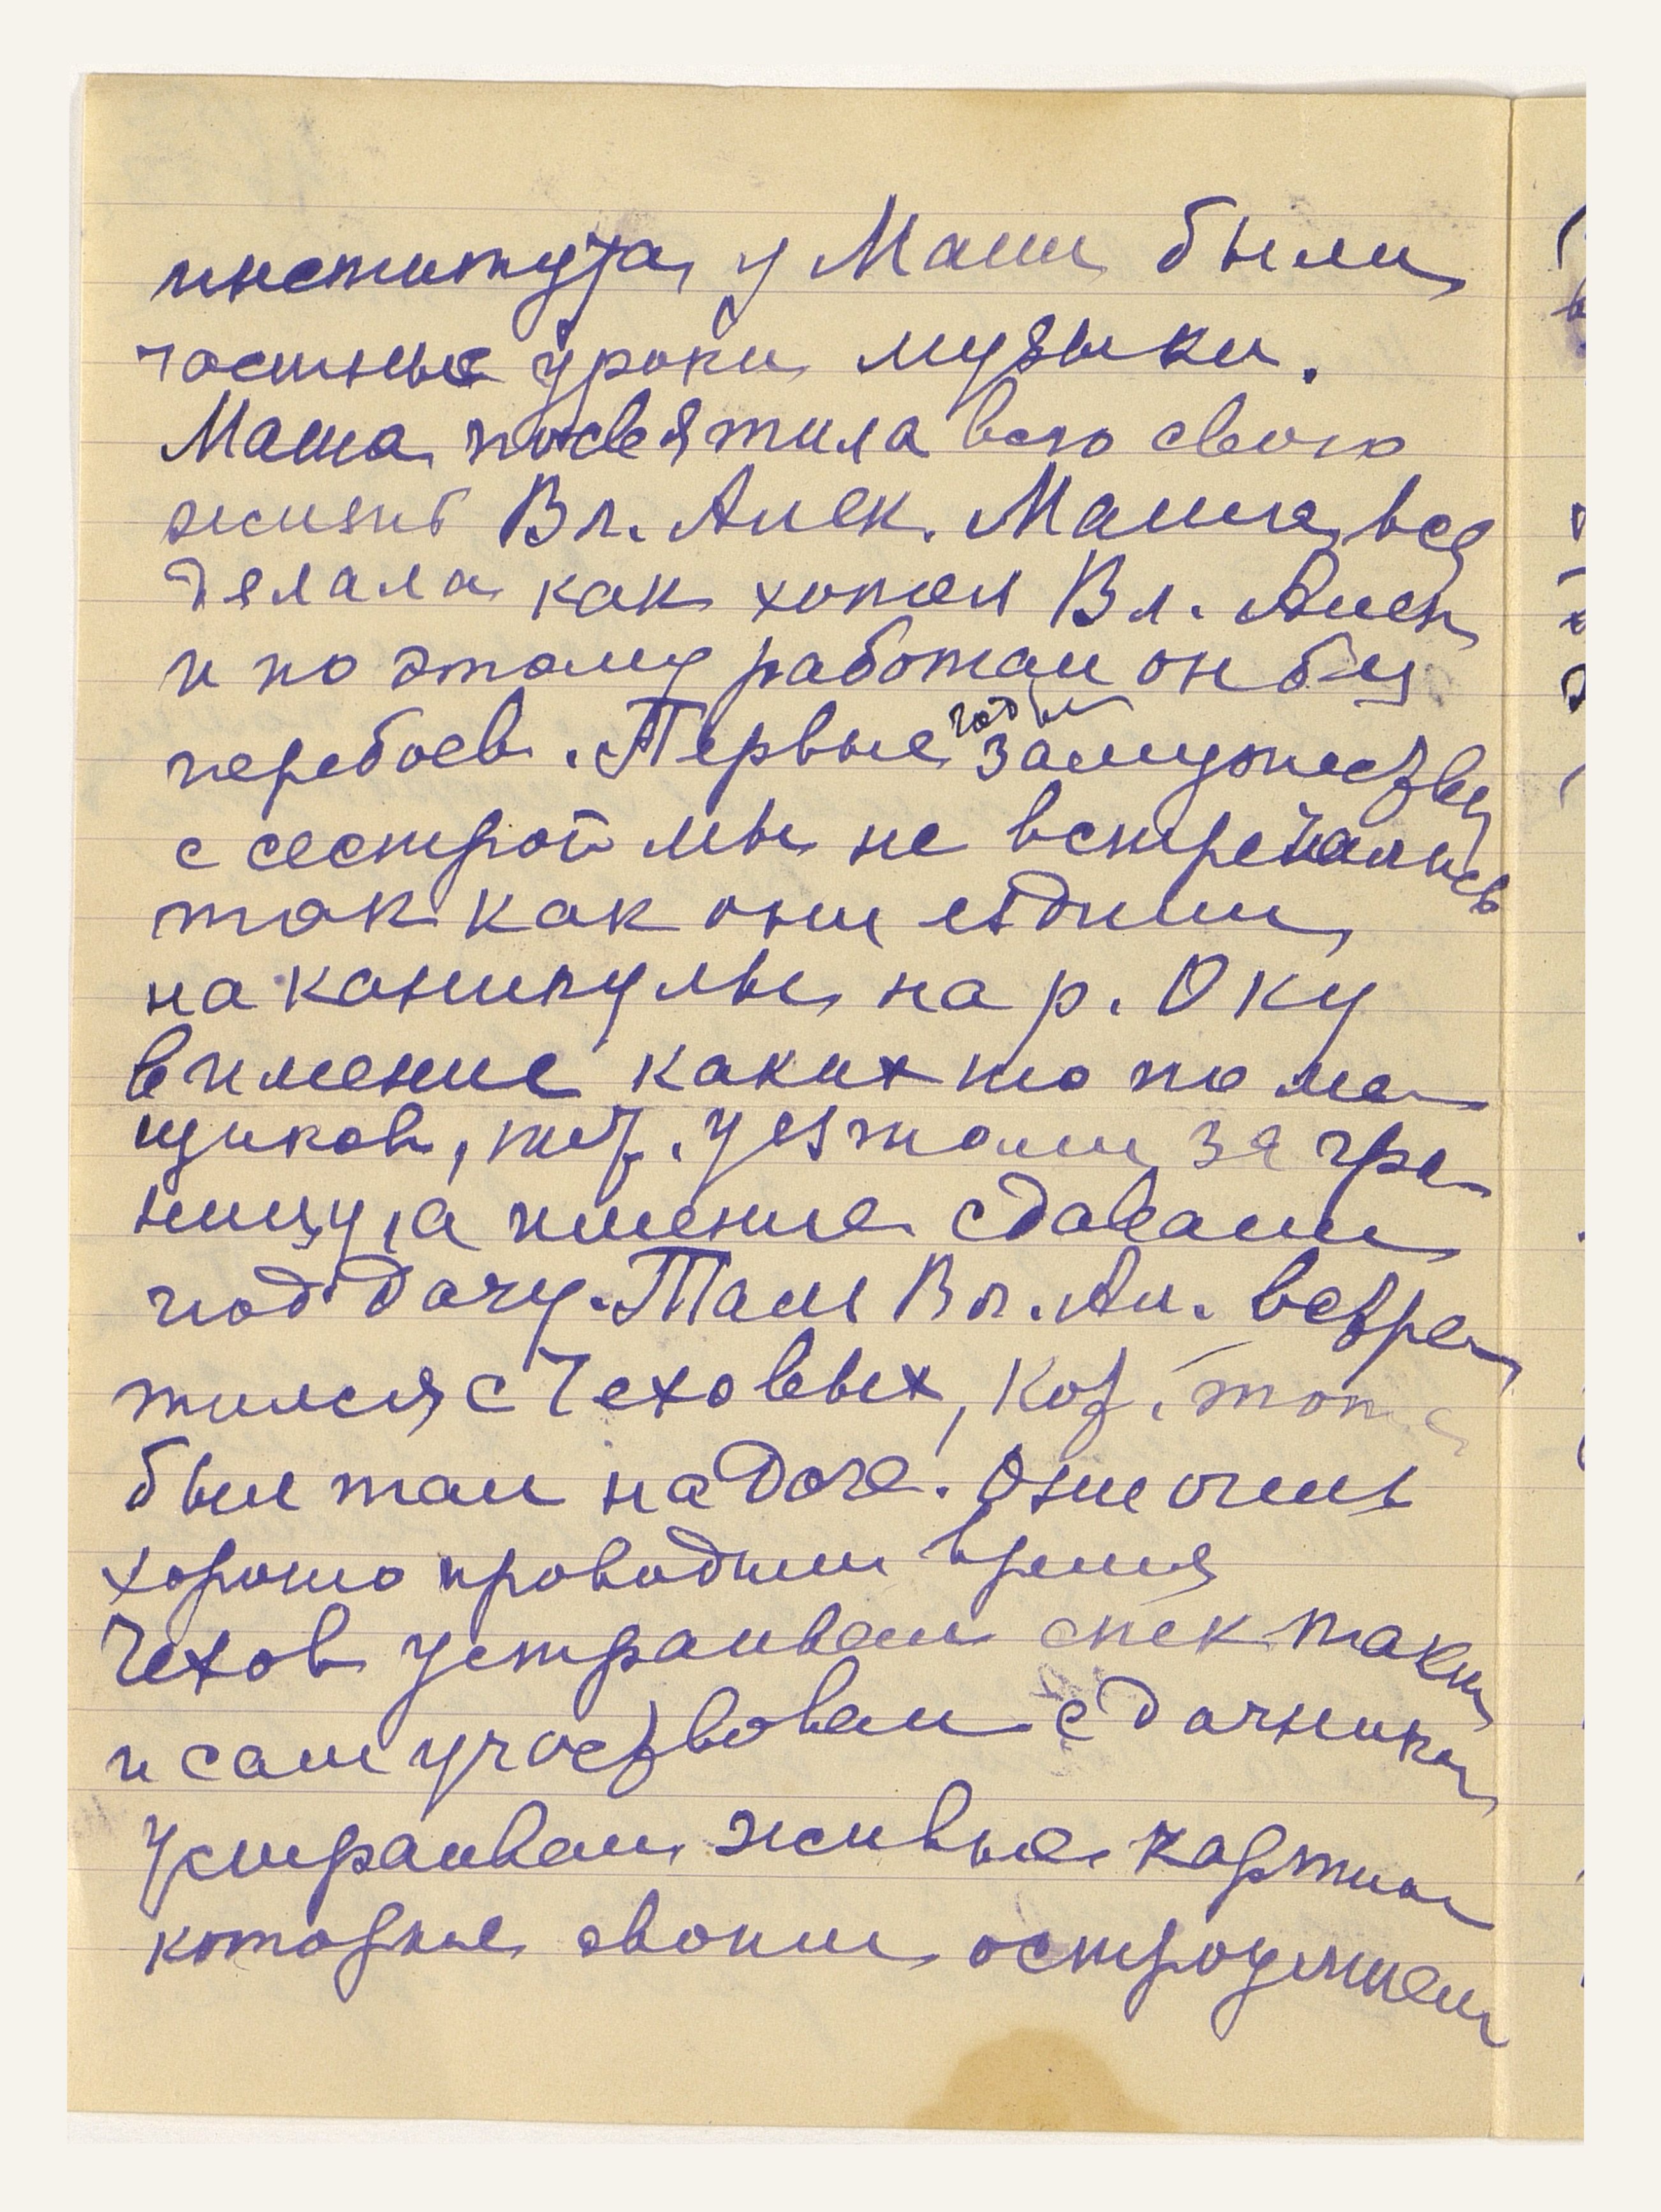 института, у Маши были
частные уроки музыки.
Маша посвятила всю свою
жизнь Вл. Алек. Маша все
делала как хотел Вл. Алек
и по этому работал он без
перебоев. Первые годы замужества
с сестрой мы не встречались
так как они ездили
на каникулы на р. Оку
в имение каких то поме
щиков, кот. уезжали за гра
ницу, а имение сдавали
под дачу. Там Вл. Ал. встре
тился с Чеховых, кот. тоже
был там на даче. Они очень
хорошо проводили время
Чехов устраивал спектакли
и сам участвовал с дачника
Устраивал живые картины
которые своим остроумием